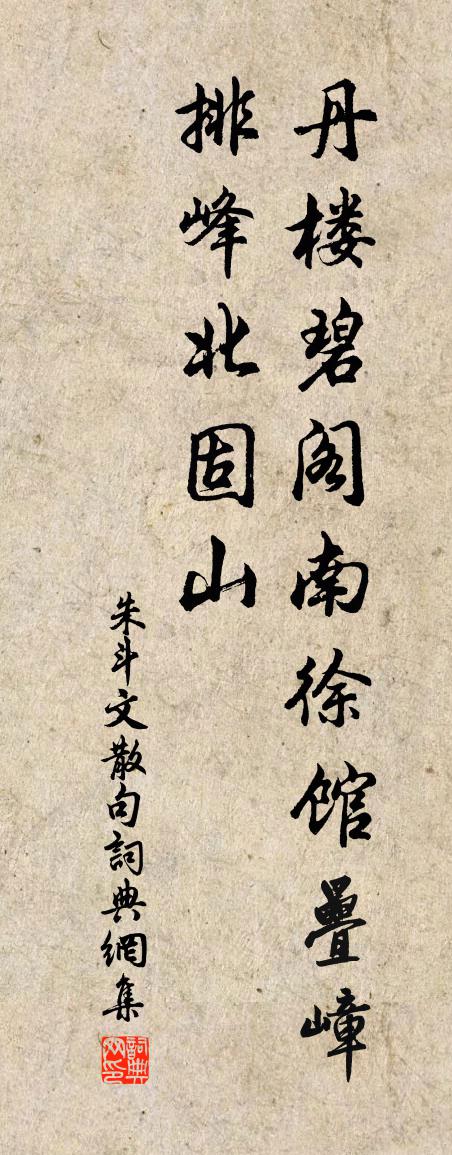 丹楼碧阁南徐馆叠嶂
排峰北固山
朱斗文散句詞典網集
詞典网印